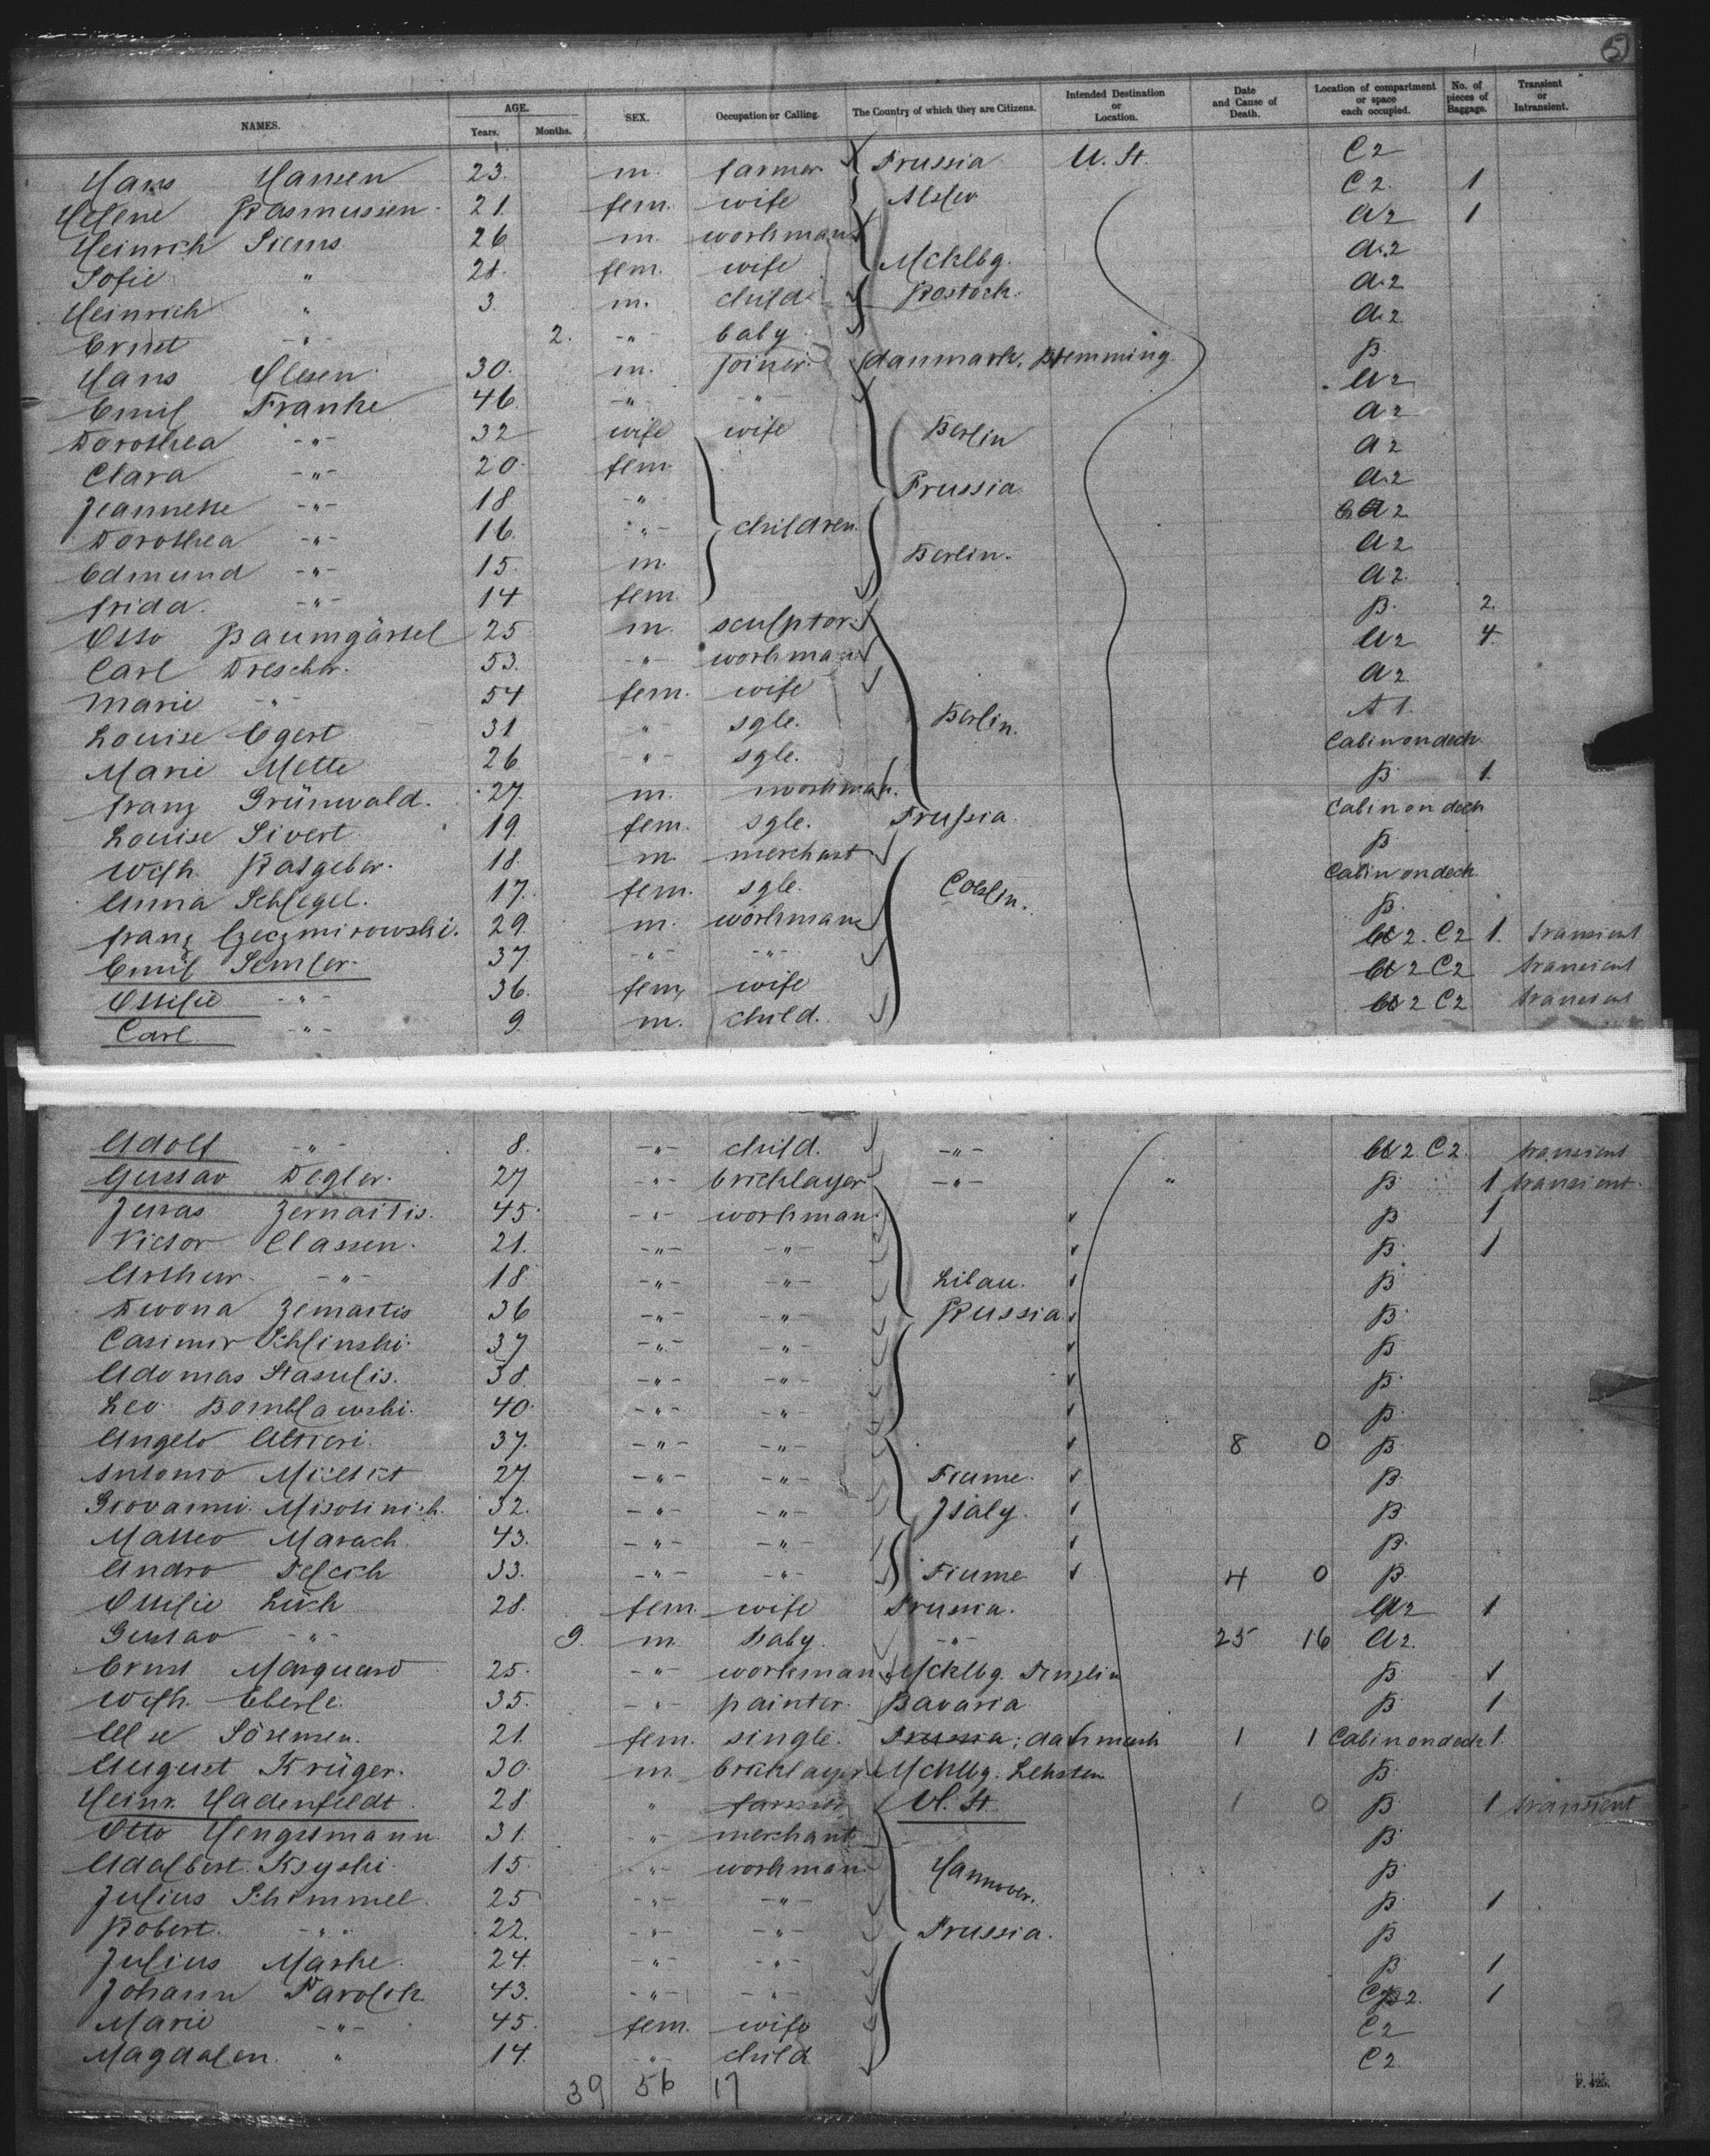 5
NAMES. AGE. Years. Months. SEX. Occupation or Calling. The Country of which they are Citizens. Intended Destination or Location. Date and Cause of Death. Location of compartment or space each occupied. No. of pieces of Baggage. Transient or Intransient.
Hans Hansen 23. m. farmer Prussia U. St. C2
Helene Rasmussen 21 fem. wife C2. 1
Heinrich Siems 26 m. workman a2 1
Sofie " 21. fem. wife Mcklbg. a.2
Heinrich " 3. m. child Rostock. a.2
Ernst -"- 2. -"- baby a.2
Hans Olesen 30. m. joiner. danmark. B
Emil Franke 46. -"- -"- a2
Dorothea -"- 32 wife wife Berlin a2
Clara -"- 20. fem. a2
Jeannette -"- 18 -"- Prussia a.2
Dorothea -"- 16. -"- children. a2
Edmund -"- 15. m. Berlin. a2
frida. -"- 14 fem. a2.
Otto Baumgärtel 25 m. sculptor. B. 2.
Carl Drescher. 53. -"- workman a2 4.
Marie -"- 54 fem. wife a2
Louise Egert 31 " sgle. Berlin. A 1.
Marie Mette 26 -"- sgle. Cabin on deck.
franz Grünwald. 27. m. workman. B 1.
Louise Sivert 19. fem. sgle. Prussia. Cabin on deck
Wilh. Ratgeber. 18. m. merchant B
Anna Schlegel. 17. fem. sgle. Coeslin. Cabin on deck.
franz Czeczmirowski. 29. m. workman B.
Emil Semler. 37 -"- -"- 2. C2 1. transient
Ottilie -"- 36. fem. wife 2 C2 transient
Carl -"- 9. m. child. 2 C2 transient
Adolf -"- 8. -"- child. -"- 2 C2. transient
Gustav Degler. 27 -"- bricklayer -"- " B 1 transient.
Juras Zernaitis. 45. -"- workman B 1
Victor Classen. 21. -"- -"- B. 1
Arthur. -"- 18 -"- -"- Libau. B
Dwona Zemaitis 36 -"- -"- Russia. B
Casimir Schlinski. 37 -"- -"- B
Adomas Stasulis. 38. -"- -"- B.
Leo Bomblawski. 40. -"- -"- B.
Angelo Altieri. 37. -"- -"- 8 0 B
Antonio 27. -"- -"- Fiume. B
Giovanni Misotinich. 32. -"- -"- Italy. B
Matteo Marach. 43. -"- -"- B.
Andro 33. -"- -"- Fiume 4 0 B.
Ottilie Lück 28. fem. wife Prussia. a2 1
Gustav -"- 9. m. baby. -"- 25 16 a2.
Ernst Marquard 25. -"- workman Mcklbg. Penzlin B 1
Wilh. Eberle. 35. -"- painter. Bavaria B 1
Else Sörensen. 21. fem. single. Prussia; danmark 1 1 Cabin on deck 1.
August Krüger. 30. m. bricklayer Mcklbg. Lehsten B.
Heinr. Hadenfeldt. 28 " farmer U. St. 1 0 B 1 transient
Otto Hengstmann 31. -"- merchant B
Adalbert Ksyski. 15. -"- workman Hannover. B
Julius Schimmel. 25 -"- -"- B 1
Robert. -"- 22. -"- -"- Prussia. B
Julius Marke. 24. -"- -"- B 1
Johann Parolek 43. -"- -"- C2. 1
Marie -"- 45. fem. wife C2
Magdalen. " 14. -"- child C2.
39 56 17
F. 425.